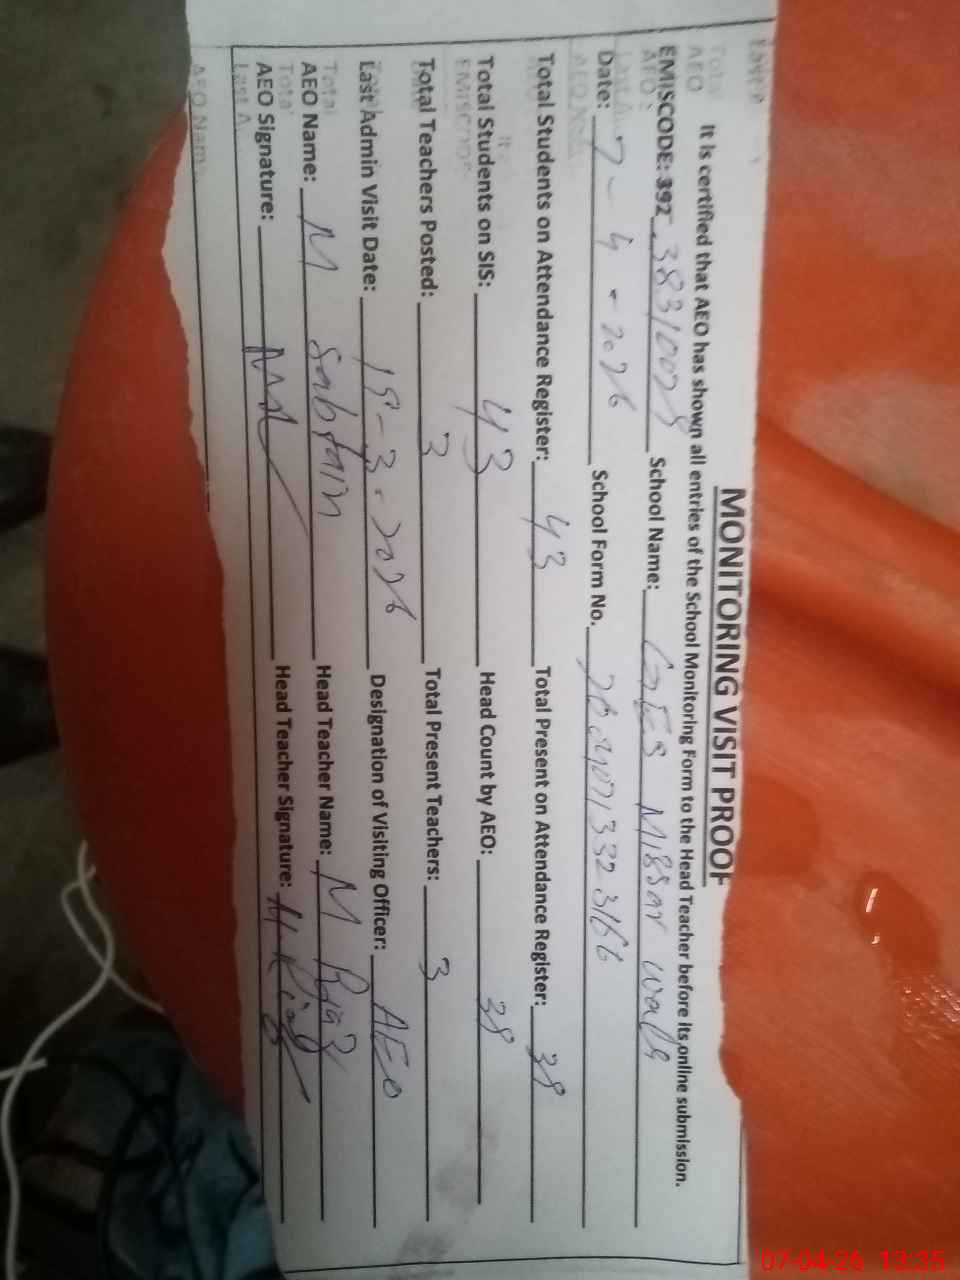 MONITORING VISIT PROOF
It is certified that AEO has shown all entries of the School Monitoring Form to the Head Teacher before its online submission.
EMISCODE: 392 School Name: GES Missar wala
Date: 7-4-2026 School Form No.
Total Students on Attendance Register: 43 Total Present on Attendance Register: 38
Total Students on SIS: 43 Head Count by AEO: 38
Total Teachers Posted: 3 Total Present Teachers: 3
Last Admin Visit Date: Designation of Visiting Officer: AEO
AEO Name: M Head Teacher Name: M Riaz
AEO Signature: Head Teacher Signature: M Riaz
AEO Name
07-04-26 13:35